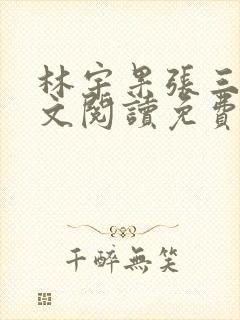 林宇杲張三
文閱讀免費
千醉無笑